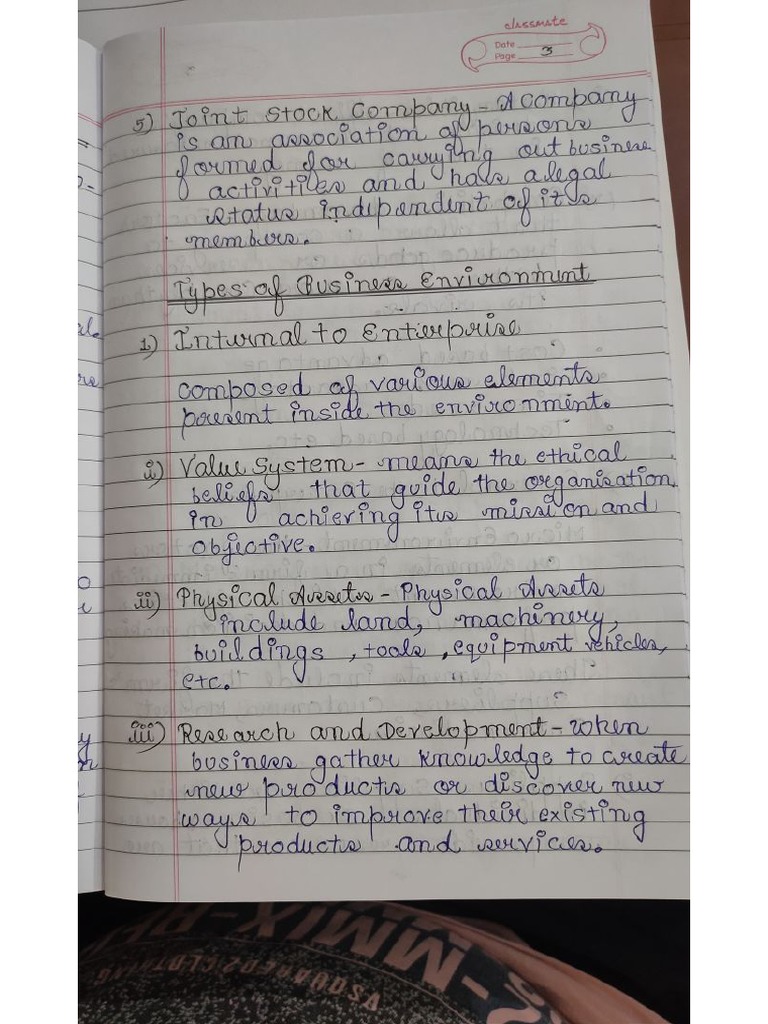 classmate
Date
Page 3
5) Joint Stock Company - A company
is an association of persons
formed for carrying out business
activities and has a legal
status independent of its
members.
Types of Business Environment
1) Internal to Enterprise
composed of various elements
present inside the environment.
i) Value System - means the ethical
beliefs that guide the organisation
in achieving its mission and
objective.
ii) Physical Assets - Physical Assets
include land, machinery,
buildings, tools, equipment vehicles,
etc.
iii) Research and Development - when
business gather knowledge to create
new products or discover new
ways to improve their existing
products and services.